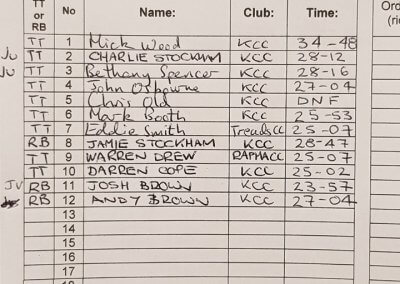 TT or RB No Name: Club: Time: Ord
(ri
TT 1 Mick Wood KCC 34-48
JU TT 2 CHARLIE STOCKHAM KCC 28-12
JU TT 3 Bethany Spencer KCC 28-16
TT 4 John Osbourne KCC 27-04
TT 5 Chris Old KCC DNF
TT 6 Mark Booth KCC 25-53
TT 7 Eddie Smith TreadsCC 25-07
RB 8 JAMIE STOCKHAM KCC 28-47
TT 9 WARREN DREW RAPHACC 25-07
TT 10 DARREN COPE KCC 25-02
JV RB 11 JOSH BROWN KCC 23-57
RB 12 ANDY BROWN KCC 27-04
13
14
15
16
17
18